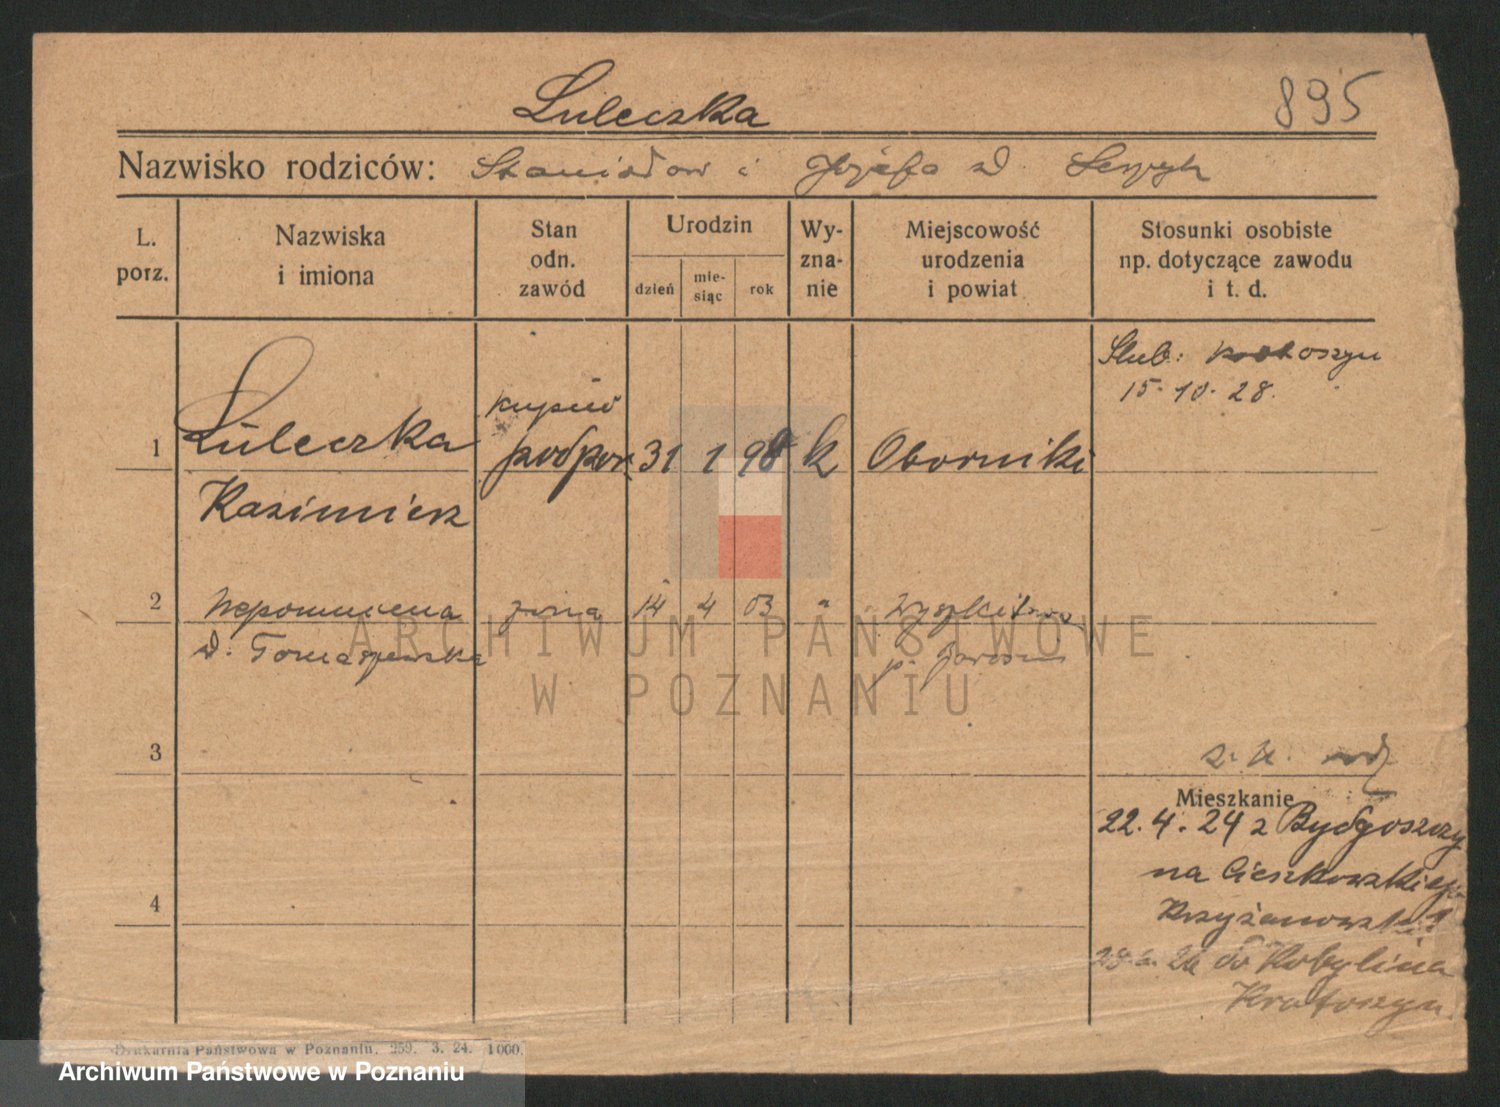 Luleczka
895
Nazwisko rodziców: Stanisław i Józefa d.
L. porz.
Nazwiska i imiona
Stan odn. zawód
Urodzin
dzień
mie-
siąc
rok
Wy-
zna-
nie
Miejscowość urodzenia i powiat
Stosunki osobiste np. dotyczące zawodu i t. d.
Ślub: Krotoszyn
15.10.28.
kupiec
1 Luleczka podpor. 31 1 98 k Oborniki
Kazimierz
2 Nepomucena żona 14 4 03 "
d. Tomaszewska p.
3
Mieszkanie
22.4.24 z Bydgoszczy
na Cieszkowskiego
Krzyżanowski
4
26 do Kobylina
Krotoszyn
Drukarnia Państwowa w Poznaniu. 259. 3. 24. 1000.
ARCHIWUM PAŃSTWOWE
W POZNANIU
Archiwum Państwowe w Poznaniu